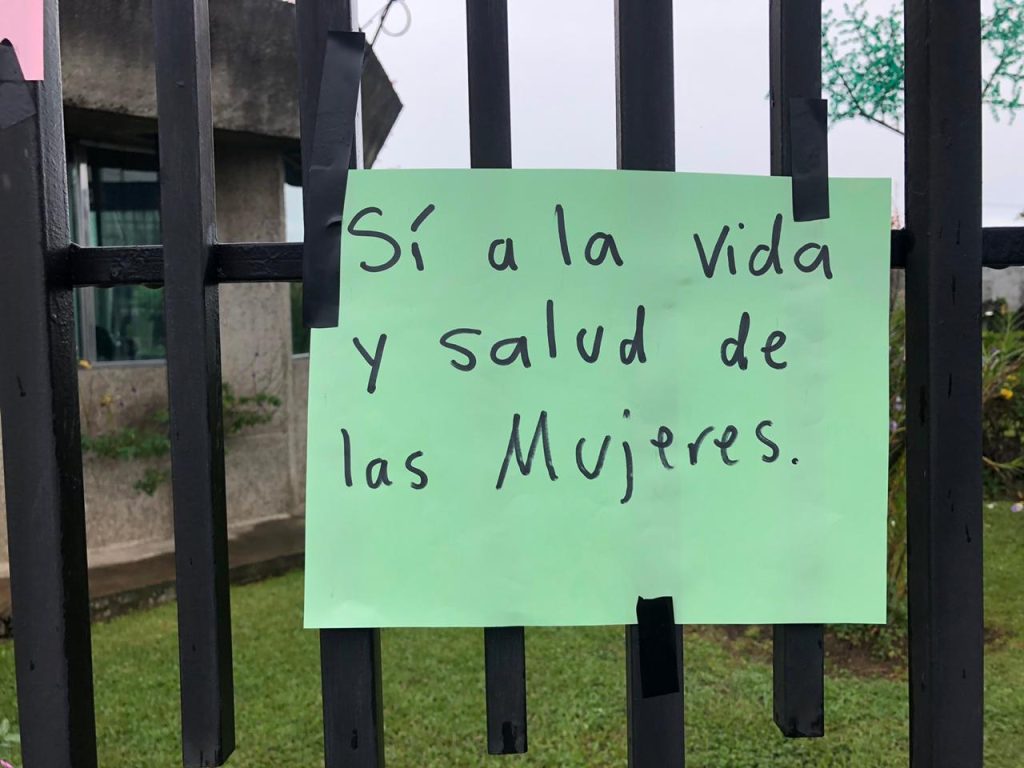 Sí a la vida
y salud de
las Mujeres.